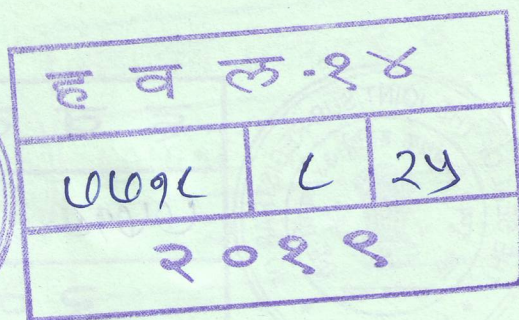 ह व ल-१४
७७१८ ८ २५
२०१९